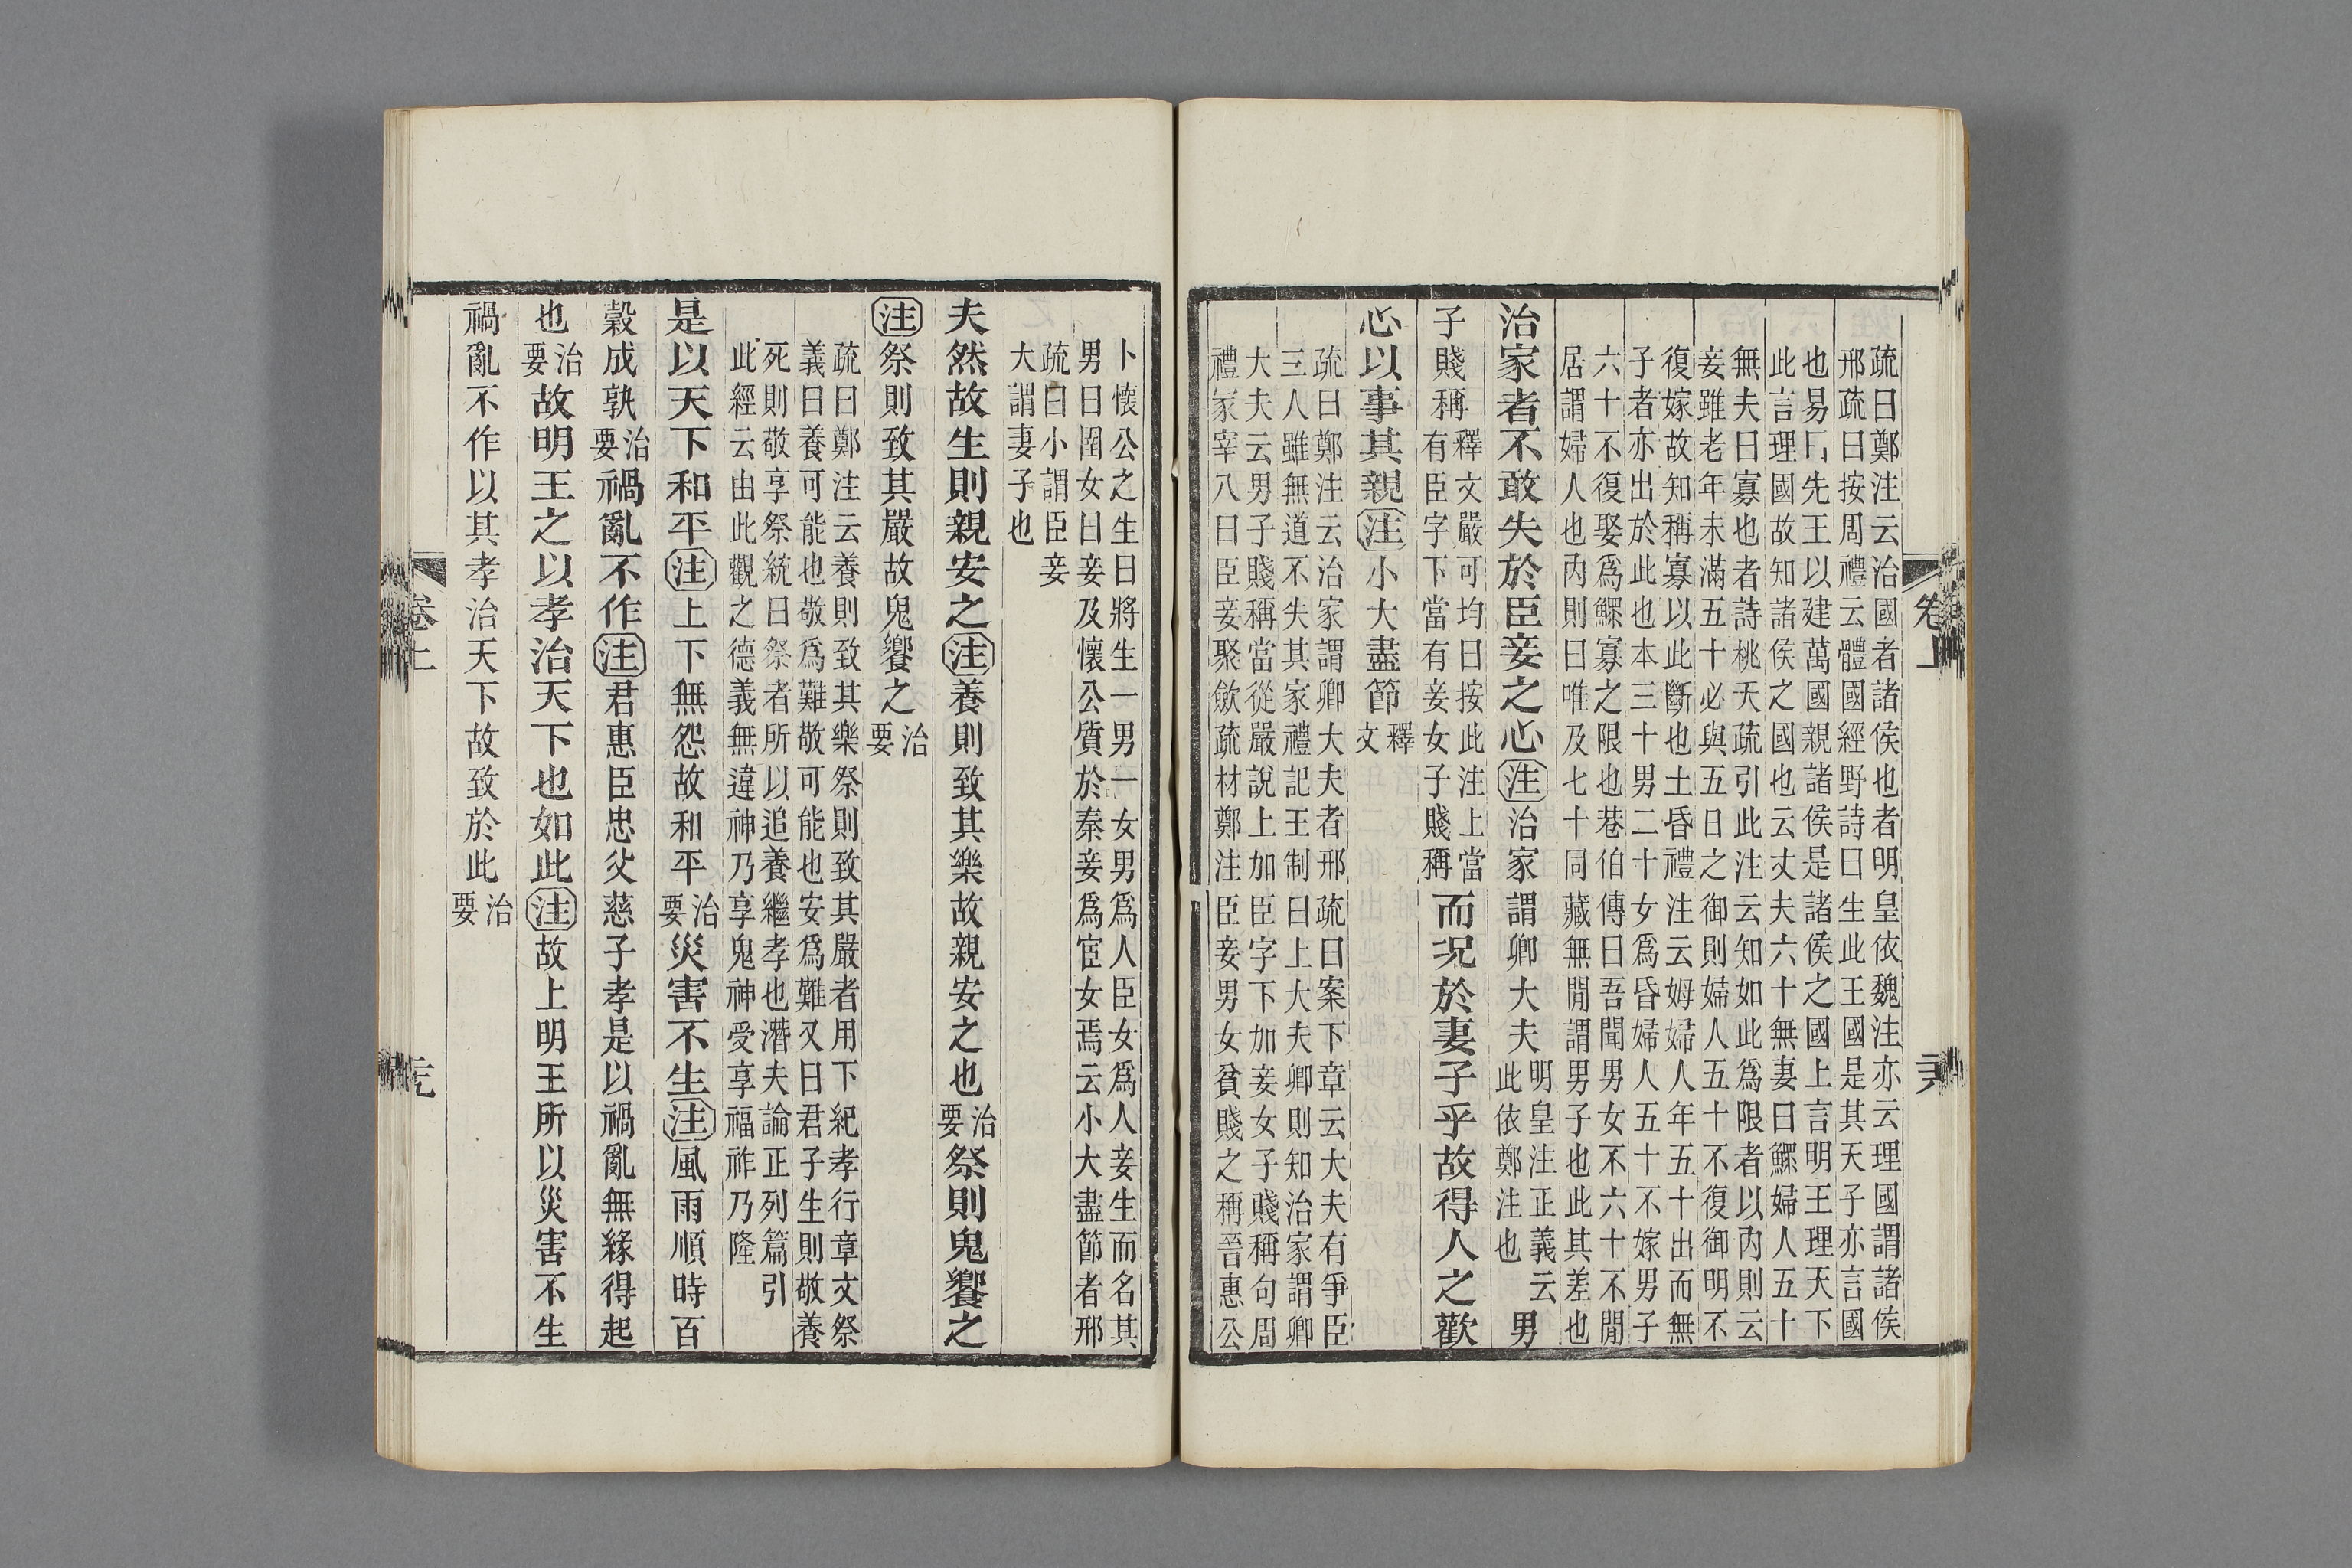 疏曰鄭注云治國者諸侯也者明皇依魏注亦云理國謂諸侯
邢疏曰按周禮云體國經野詩曰生此王國是其天子亦言國
也易曰先王以建萬國親諸侯是諸侯之國上言明王理天下
此言理國故知諸侯之國也云丈夫六十無妻曰鰥婦人五十
無夫曰寡也者詩桃夭疏引此注云知如此爲限者以內則云
妾雖老年未滿五十必與五日之御則婦人五十不復御明不
復嫁故知稱寡以此斷也士昏禮注云姆婦人年五十出而無
子者亦出於此也本三十男二十女爲昏婦人五十不嫁男子
六十不復娶爲鰥寡之限也巷伯傳曰吾聞男女不六十不閒
居謂婦人也內則曰唯及七十同藏無閒謂男子也此其差也
治家者不敢失於臣妾之心注治家謂卿大夫明皇注正義云此依鄭注也男
子賤稱釋文嚴可均曰按此注上當有臣字下當有妾女子賤稱而況於妻子乎故得人之歡
心以事其親注小大盡節釋文
疏曰鄭注云治家謂卿大夫者邢疏曰案下章云大夫有爭臣
三人雖無道不失其家禮記王制曰上大夫卿則知治家謂卿
大夫云男子賤稱當從嚴說上加臣字下加妾女子賤稱句周
禮冢宰八曰臣妾聚斂疏材鄭注臣妾男女貧賤之稱晉惠公
卷上
卜懷公之生曰將生一男一女男爲人臣女爲人妾生而名其
男曰圉女曰妾及懷公質於秦妾爲宦女焉云小大盡節者邢
疏曰小謂臣妾
大謂妻子也
夫然故生則親安之注養則致其樂故親安之也治要祭則鬼饗之
注祭則致其嚴故鬼饗之治要
疏曰鄭注云養則致其樂祭則致其嚴者用下紀孝行章文祭
義曰養可能也敬爲難敬可能也安爲難又曰君子生則敬養
死則敬享祭統曰祭者所以追養繼孝也潛夫論正列篇引
此經云由此觀之德義無違神乃享鬼神受享福祚乃隆
是以天下和平注上下無怨故和平治要災害不生注風雨順時百
穀成孰治要禍亂不作注君惠臣忠父慈子孝是以禍亂無緣得起
也治要故明王之以孝治天下也如此注故上明王所以災害不生
禍亂不作以其孝治天下故致於此治要
卷上